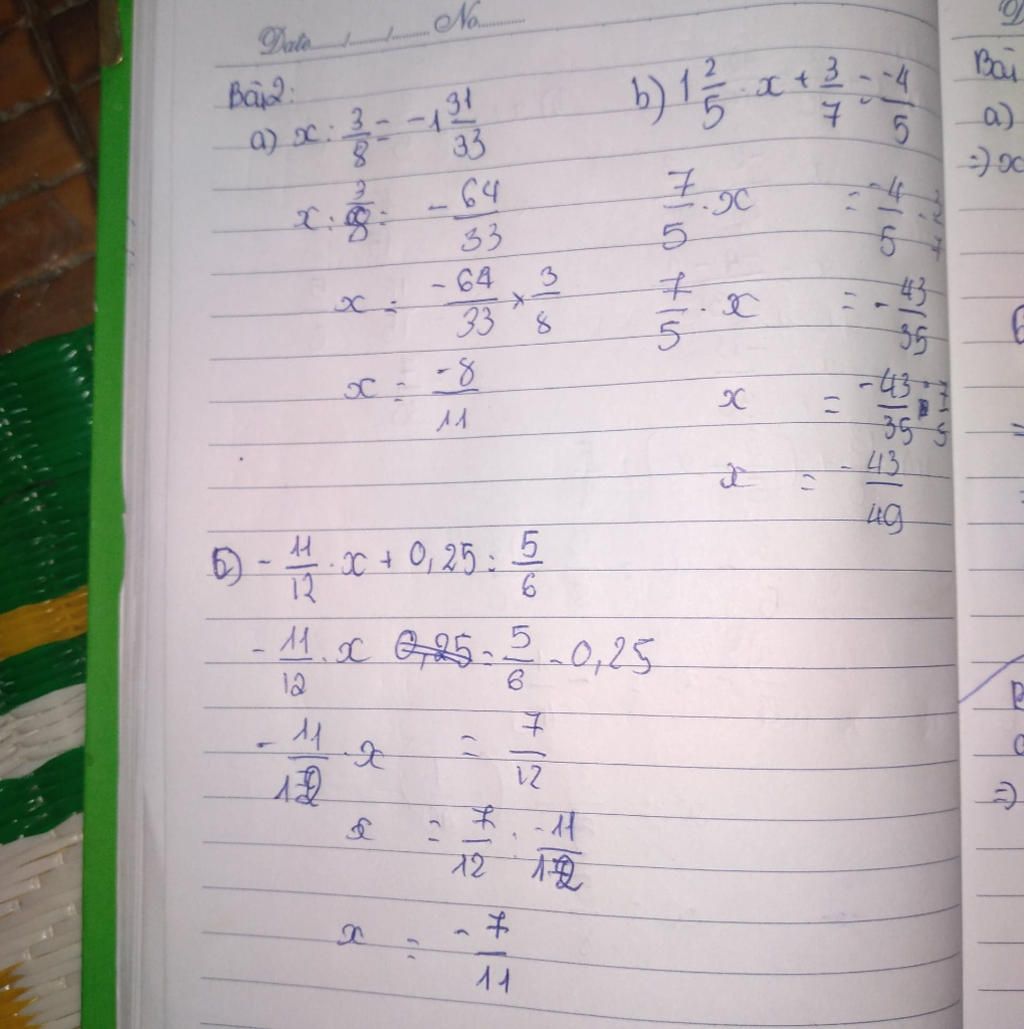 Date...../...../......... No............
Bài 2:
a) x : 3/8 = -1 31/33
x : 3/8 = -64/33
x = -64/33 × 3/8
x = -8/11
b) 1 2/5 . x + 3/7 = -4/5
7/5 . x = -4/5 - 3/7
7/5 . x = -43/35
x = -43/35 : 7/5
x = -43/49
-11/12 . x + 0,25 = 5/6
-11/12 . x = 5/6 - 0,25
-11/12 . x = 7/12
x = 7/12 : -11/12
x = -7/11
Bài
a)
=) x
=)